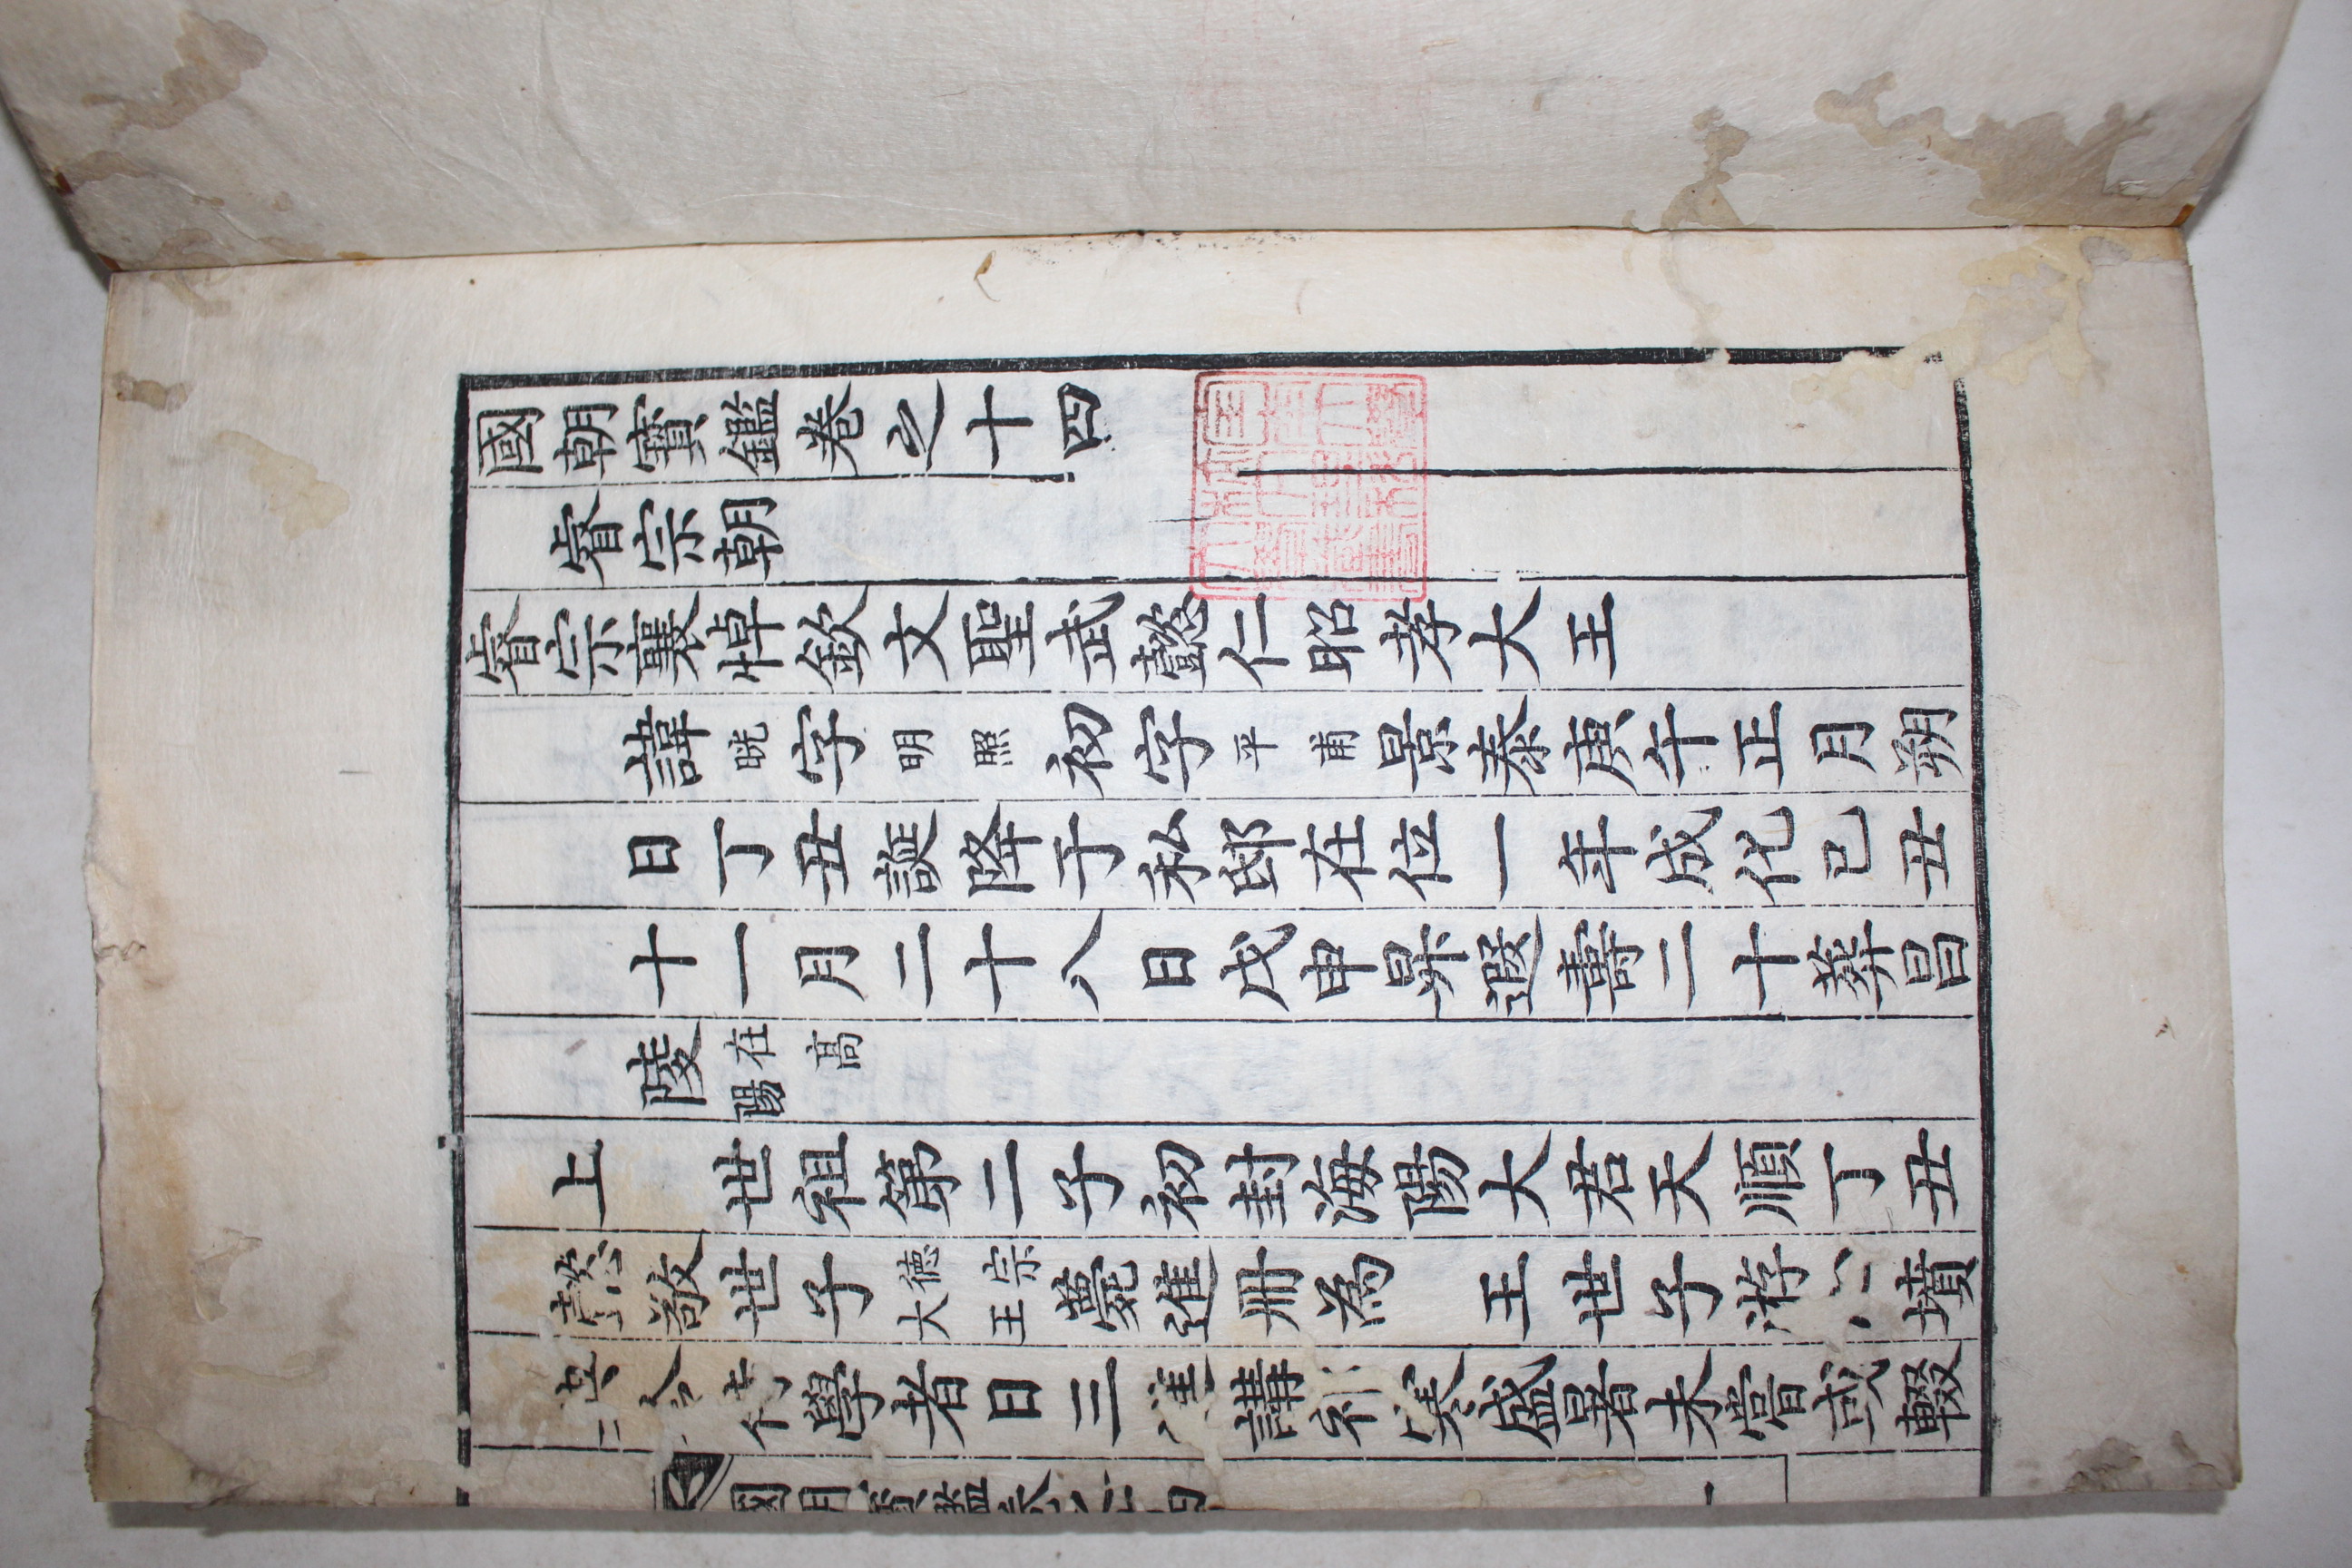 國朝寶鑑卷之十四
睿宗朝
睿宗襄悼欽文聖武懿仁昭孝大王
諱晄字明照初字平甫景泰庚午正月朔
日丁丑誕降于私邸在位一年成化己丑
十一月二十八日戊申昇遐壽二十葬昌
陵在高陽
上 世祖第二子初封海陽大君天順丁丑
懿敬世子德宗大王薨進冊為 王世子游心墳
典學者日三進講祁寒盛暑未嘗或輟
國朝寶鑑卷之十四 一